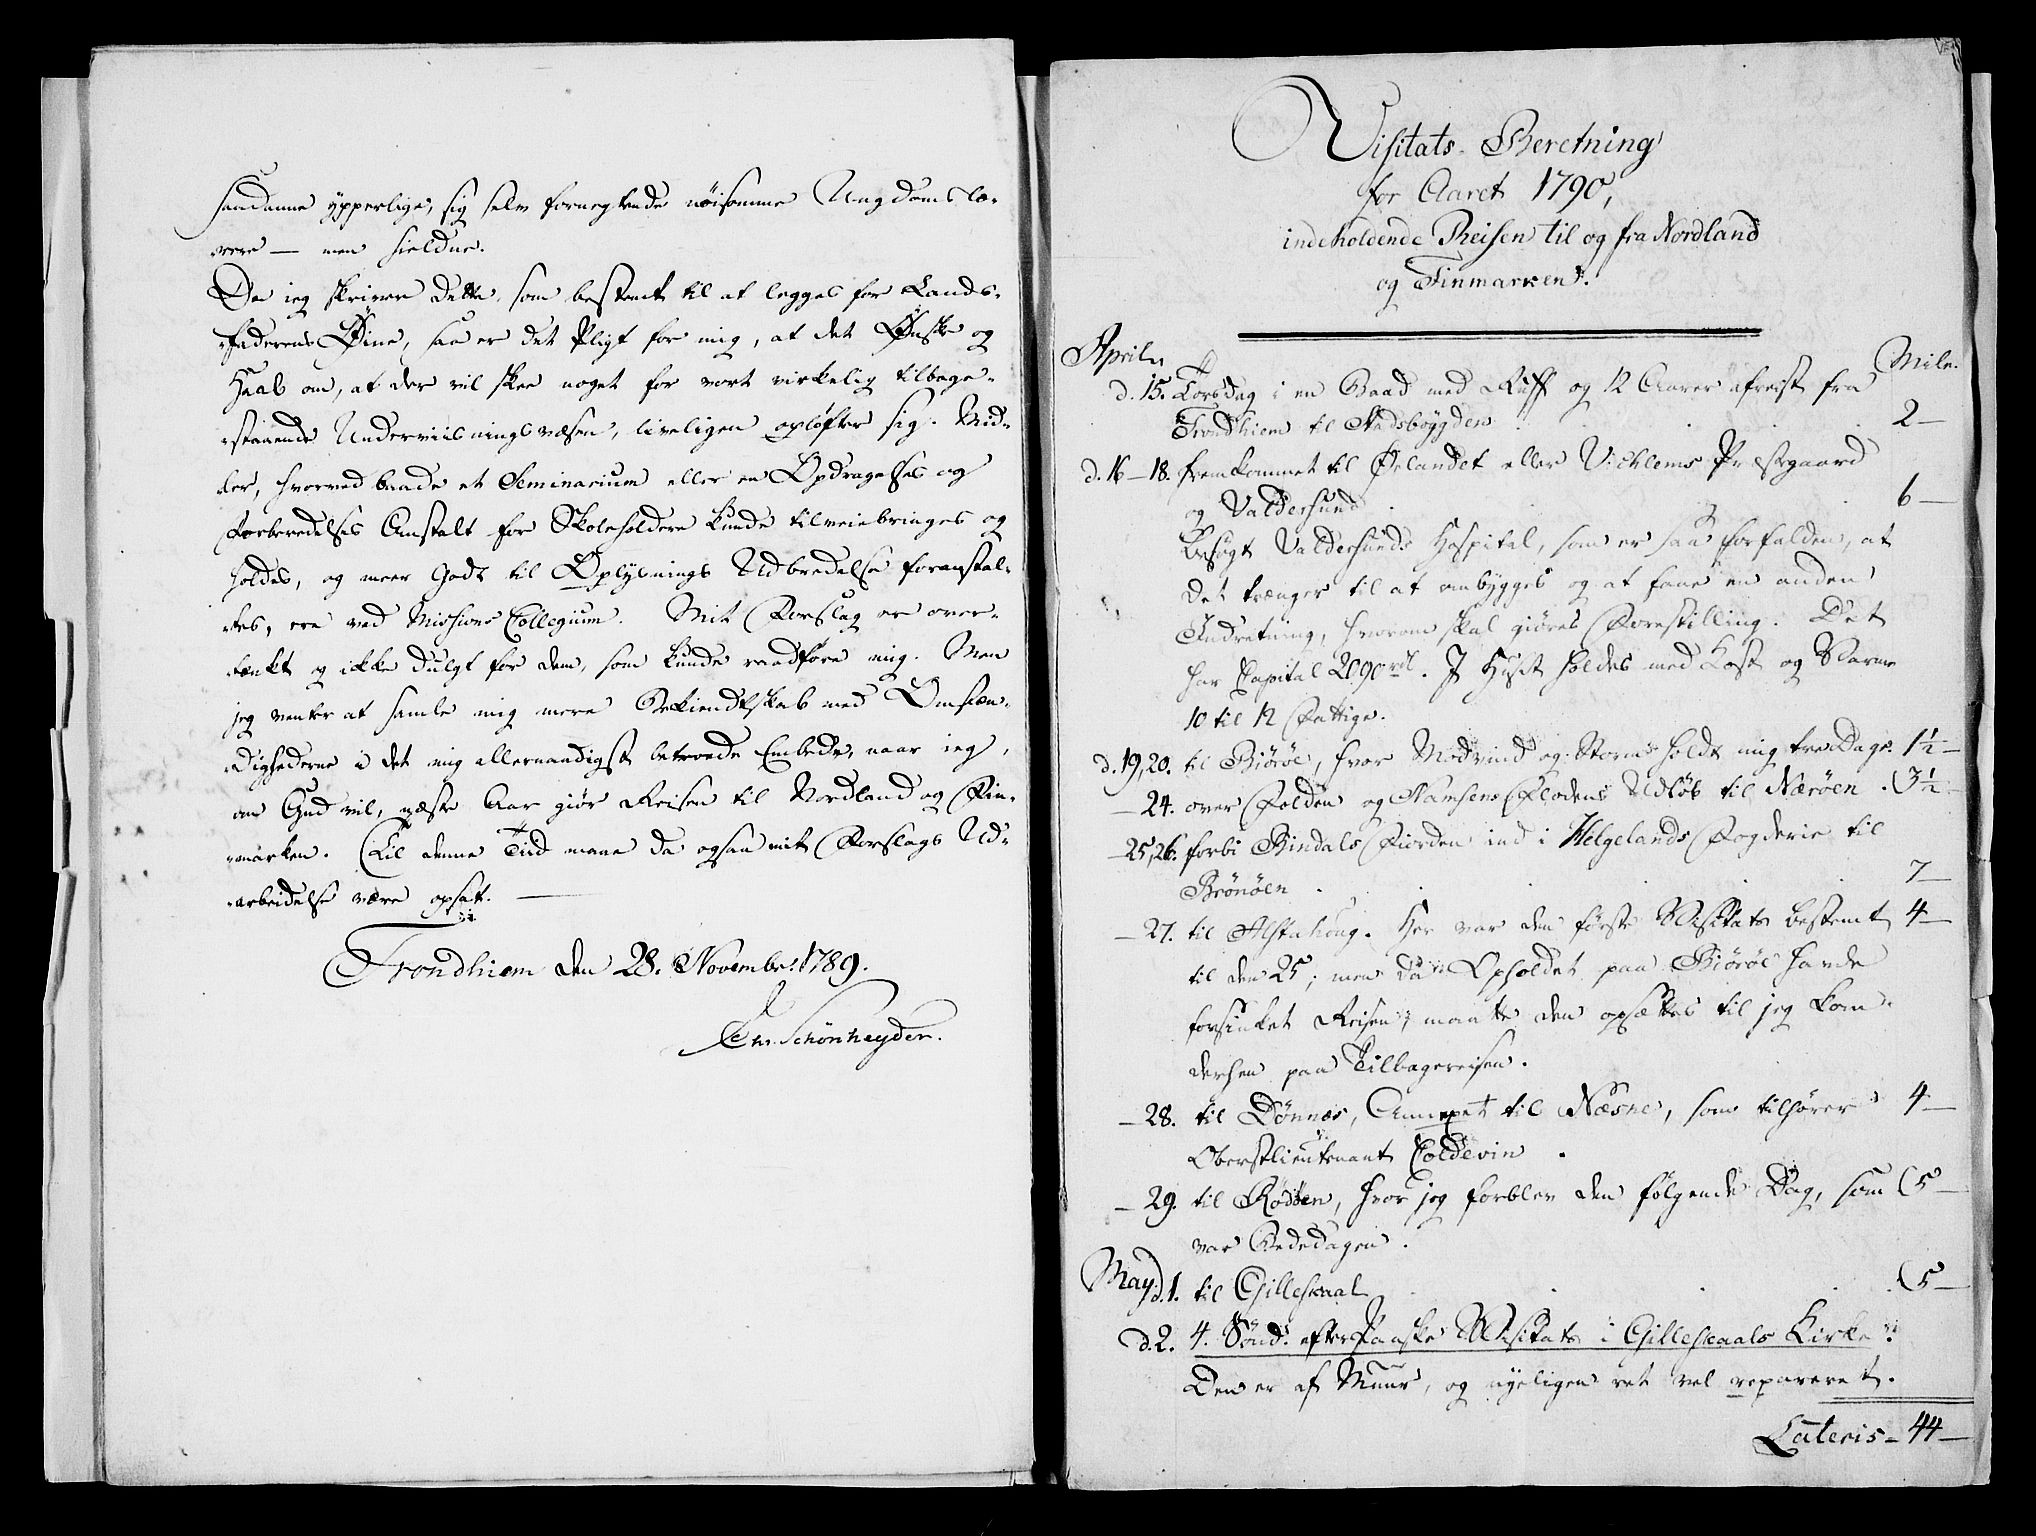 saadanne ypperlige, sig selv fornegtende nöisomme Ungdomslæ-
rere — men sieldne.
Da jeg skriver dette, som bestemt til at legges for Lands-
faderens Øine, saa er det Pligt for mig, at det Ønske og
Haab om, at der vil skee noget for vort virkelig tilbage-
staaende Underviisningsvæsen, liveligen opløfter sig. Mid-
ler, hvorved baade et Seminarium eller en Opdragelses og
Forberedelses Anstalt for Skoleholdere kunde tilveiebringes og
holdes, og meer Godt til Oplysnings Udbredelse foranstal-
tes, ere ved Missions Collegium. Mit Forslag er over-
tænkt og ikke dulgt for dem, som kunde raadføre mig. Men
jeg venter at samle mig mere Bekiendtskab med Omstæn-
dighederne i det mig allernaadigst betroede Embede, naar jeg,
om Gud vil, næste Aar giør Reisen til Nordland og Fin-
marken. Til denne Tiid maae da ogsaa mit Forslags Ud-
arbeidelse være opsat. —
Trondhiem den 28. Novembr. 1789.
Schönheyder.
Visitats-Beretning
for Aaret 1790,
indeholdende Reisen til og fra Nordland
og Finmarken.
April. Mile.
d. 15. Torsdag i en Baad med Ruff og 12 Aarer afreist fra
Trondhiem til Stadsböygden 2 —
d. 16–18. fremkommet til Ørlandet eller Vichlems Præstgaard
og Valdersund 6 —
Besøgt Valdersunds Hospital, som er saa forfalden, at
det trænger til at ombygges og at faae en anden
Indretning, hvorom skal giøres Forestilling. Det
har Capital 2090 rdl. I Huset holdes med Kost og Varme
10 til 12 Fattige.
d. 19, 20. til Biöröe, hvor Modvind og Storm holdt mig tre Dage. 1½ —
— 24. over Folden og Namsens Flodens Udløb til Nærøen. 3½ —
— 25, 26. forbi Bindals Fiorden ind i Helgelands Fogderie til
Brönöen 7 —
— 27. til Alstahoug. Her var den förste Visitats bestemt 4 —
til den 25; men da Opholdet paa Biöröe havde
forsinket Reisen, maatte den opsættes til jeg kom
derhen paa Tilbagereisen.
— 28. til Dönnæs, Annexet til Næsne, som tilhörer 4 —
Oberstlieutenant Coldevin.
— 29. til Rödöen, hvor jeg forblev den følgende Dag, som 5 —
var Bededagen.
May d. 1. til Gilleskaal 5 —
d. 2. 4. Sönd. efter Paaske Visitats i Gilleskaals Kirke.
Den er af Muur, og nyeligen ret vel repareret.
Lateris – 44 —